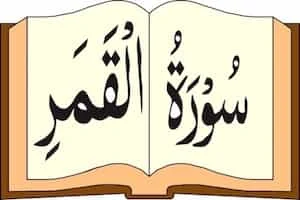 سُورَةُ الْقَمَرِ